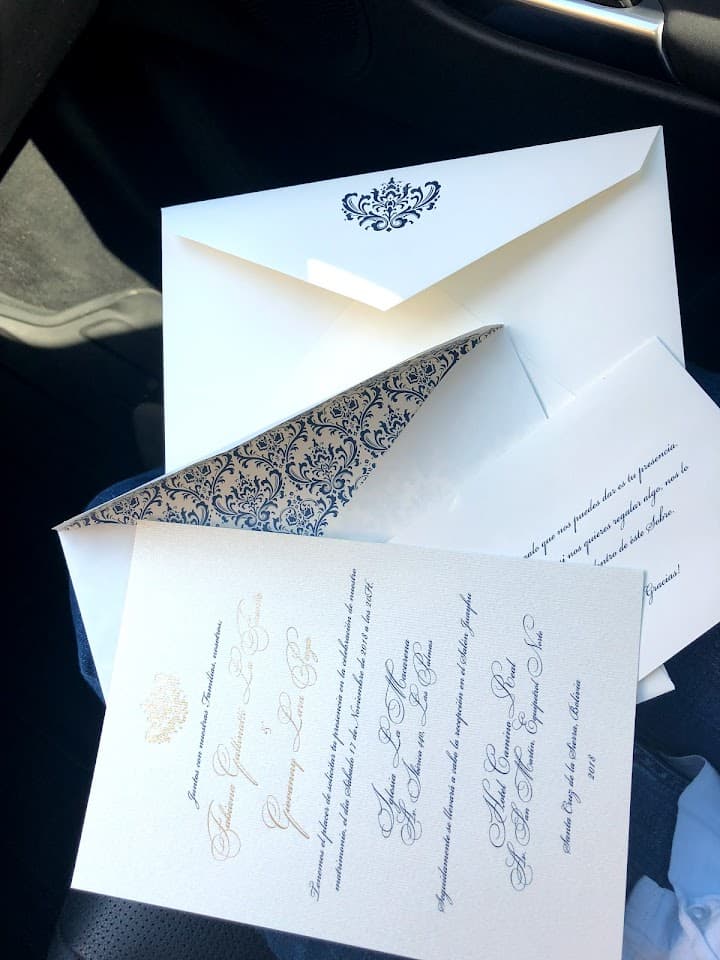 Juntos con nuestras Familias, nosotros:
Fabiana Galinato La Fuente
&
Geovanny Lara Poza
Tenemos el placer de solicitar tu presencia en la celebración de nuestro
matrimonio, el día Sábado 17 de Noviembre de 2018 a las 20H.
Iglesia La Macarena
Av. Sirari 140. Las Palmas
Seguidamente se llevará a cabo la recepción en el Salón
Hotel Camino Real
Av. San Martín, Equipetrol Norte
Santa Cruz de la Sierra, Bolivia
2018
que nos puedes dar es tu presencia,
si nos quieres regalar algo, nos lo
dentro de éste Sobre.
Gracias!